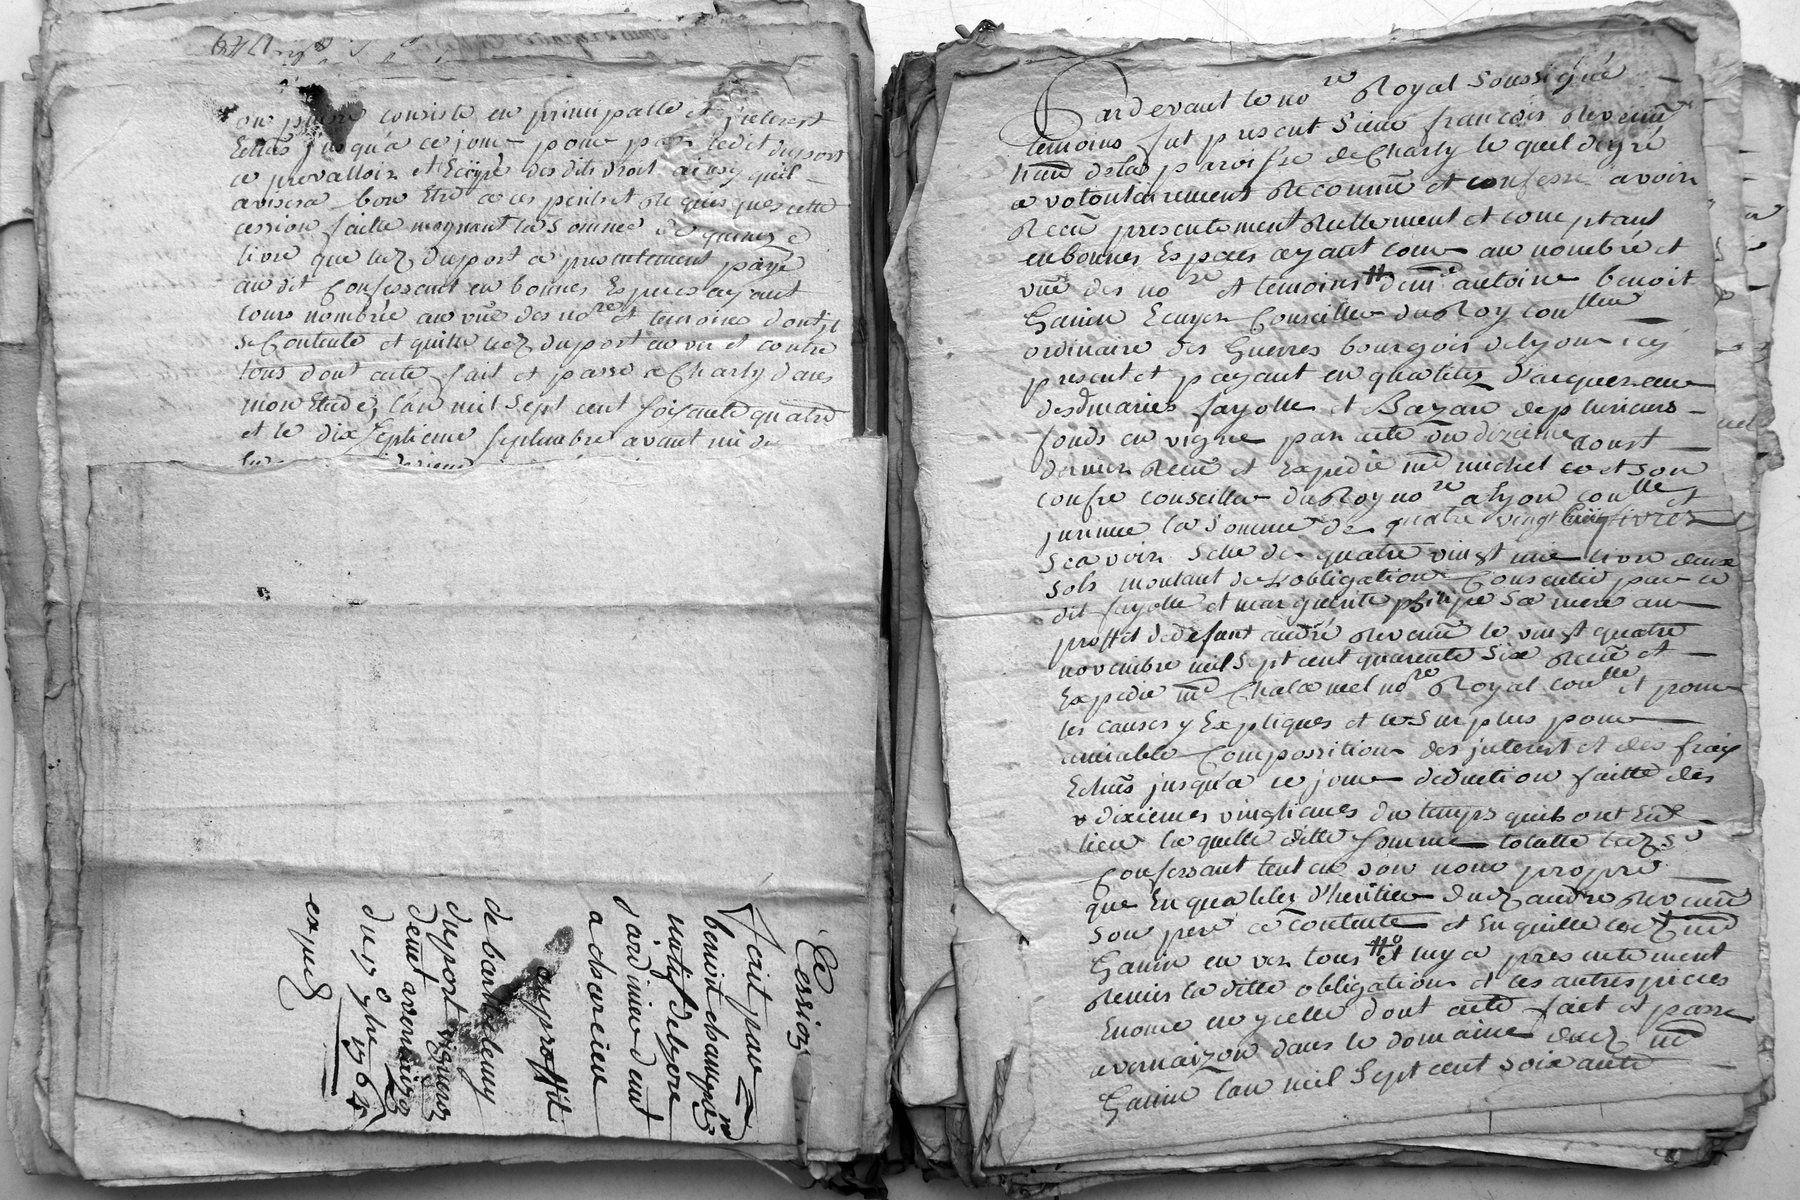 consiste en principalle et jnterest
Echus jusqu'a ce jour pour par ledit duport
ce prevalloir et Ecigé desdits droit ainsy quil
avisera bon Etre a ces perils et risques cette
cession faitte moyenant la Somme de quinze
livre que led. Duport a presentement payé
audit Confessant en bonnes Especes ayant
cours nombrée au vue des no.re et temoins dont il
se Contente et quitte led duport envers et contre
tous dont acte fait et passé a Charly dans
mon Etude, l'an mil sept cent soixante quatre
et le dix septieme septembre avant midi
Cession
fait par
benoit
natif de lyon
jardinier deme.t
a charriere
au proffit
de barthelemy
duport vigneron
deme.t a vernaizon
du 17 7bre 1764
exped
Pardevant le no.re Royal Soussigné
temoins fut present Sieur françois
de la paroisse de Charly le quel de gré
a volontairement Reconnu et confessé avoir
Receu presentement Reellement et comptant
en bonnes Especes ayant cour au nombré et
vüe des no.re et temoins # de m.e antoine benoit
Ganin Ecuyer Conseiller du Roy con.lleur
ordinaire des Guerres bourgois de lyon icy
present et payant en qualité d'acquereur
des mariés fayolle et Bazan de plusieurs
fonds en vigne par acte du dizieme aoust
dernier Receu et Expedié m.e michel coetson
confre conseiller du Roy no.re a Lyon
la Somme de quatre vingt livres
Scavoir Celle de quatre vingt une livre deux
Sols montant de L'obligation Consentie par le
dit fayolle et marguerite philipe Sa mere au
proffit de defunt andré le vingt quatre
novembre mil Sept cent quarente Six Receu et
Expedié m.e Chalamel no.re Royal et pour
les causes y Expliqués et le Surplus pour
amiable Composition des jnterest et des frais
Echus jusqu'a ce jour deduction faitte des
dixiemes vingtiemes du temps quils ont Eut
lieu la quelle ditte Somme totalle led. S.r
Confessant tent en son nom propre
que En qualité d'heritier dud andré
Son pere ce contente et En quitte led S.r
Ganin envers tous # et luy a presentement
Remis la ditte obligation et les autres pieces
Enoncé en ycelle dont acte fait et passé
a vernaizon dans le domaine dud. S.r
Ganin l'an mil Sept cent soixante